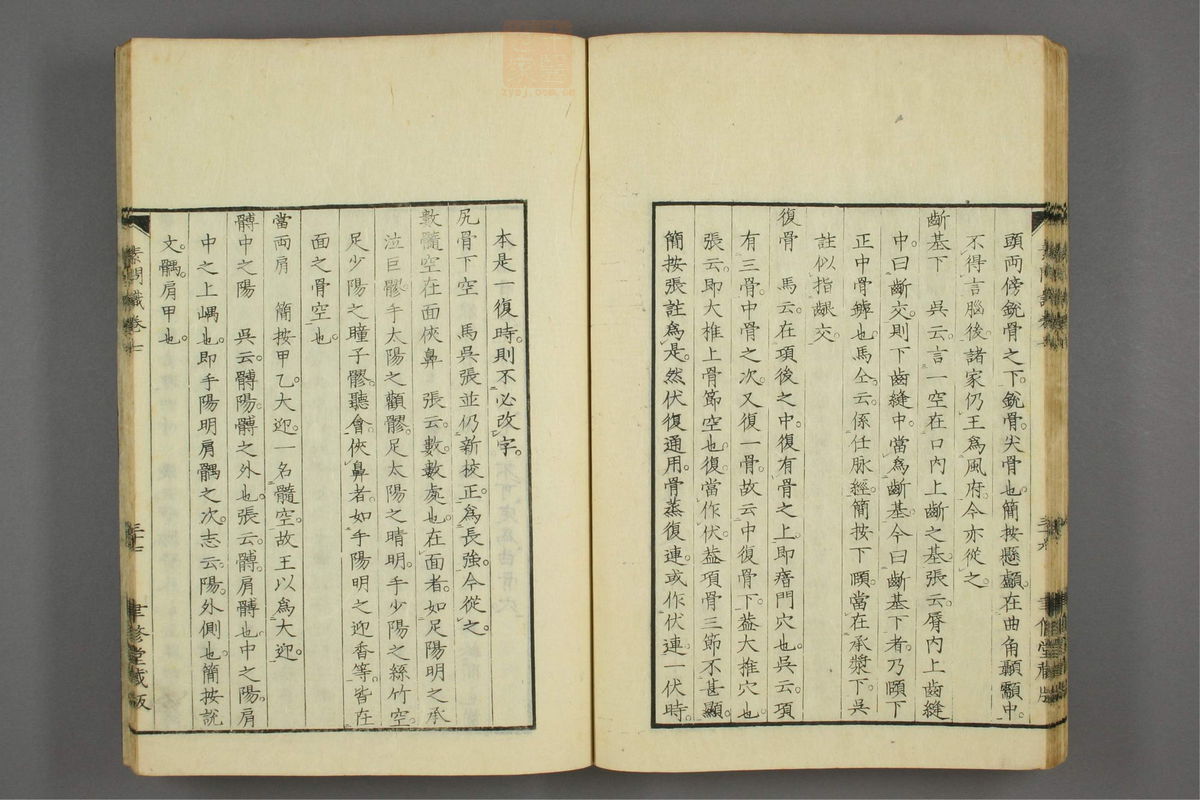 頭兩傍銳骨之下。銳骨。尖骨也。簡按懸顱。在曲角顳顬中。
不得言腦後。諸家仍王爲風府。今亦從之。
齗基下　吳云。言一空在口內上齗之基。張云。脣內上齒縫
中。曰齗交。則下齒縫中。當爲齗基。今曰齗基下者。乃頤下
正中骨罅也。馬仝。云係任脉經。簡按下頤。當在承漿下。吳
註似指齦交。
復骨　馬云。在項後之中。復有骨之上。即瘖門穴也。吳云。項
有三骨。中骨之次。又復一骨。故云中復骨下。葢大椎穴也。
張云。即大椎上骨節空也。復。當作伏。葢項骨三節不甚顯。
簡按張註爲是。然伏復通用。骨蒸復連。或作伏連。一伏時。
本是一復時。則不必改字。
尻骨下空　馬吳張並仍新校正。爲長強。今從之。
數髓空在面俠鼻　張云。數。數處也。在面者。如足陽明之承
泣巨髎。手太陽之顴髎。足太陽之睛明。手少陽之絲竹空。
足少陽之瞳子髎。聽會。俠鼻者。如手陽明之迎香等。皆在
面之骨空也。
當兩肩　簡按甲乙。大迎。一名髓空。故王以爲大迎。
髆中之陽　吳云。髆陽。髆之外也。張云。髆。肩髆也。中之陽。肩
中之上嵎也。即手陽明肩髃之次。志云。陽。外側也。簡按說
文。髃。肩甲也。
素問識卷七
三十七
聿修堂藏版